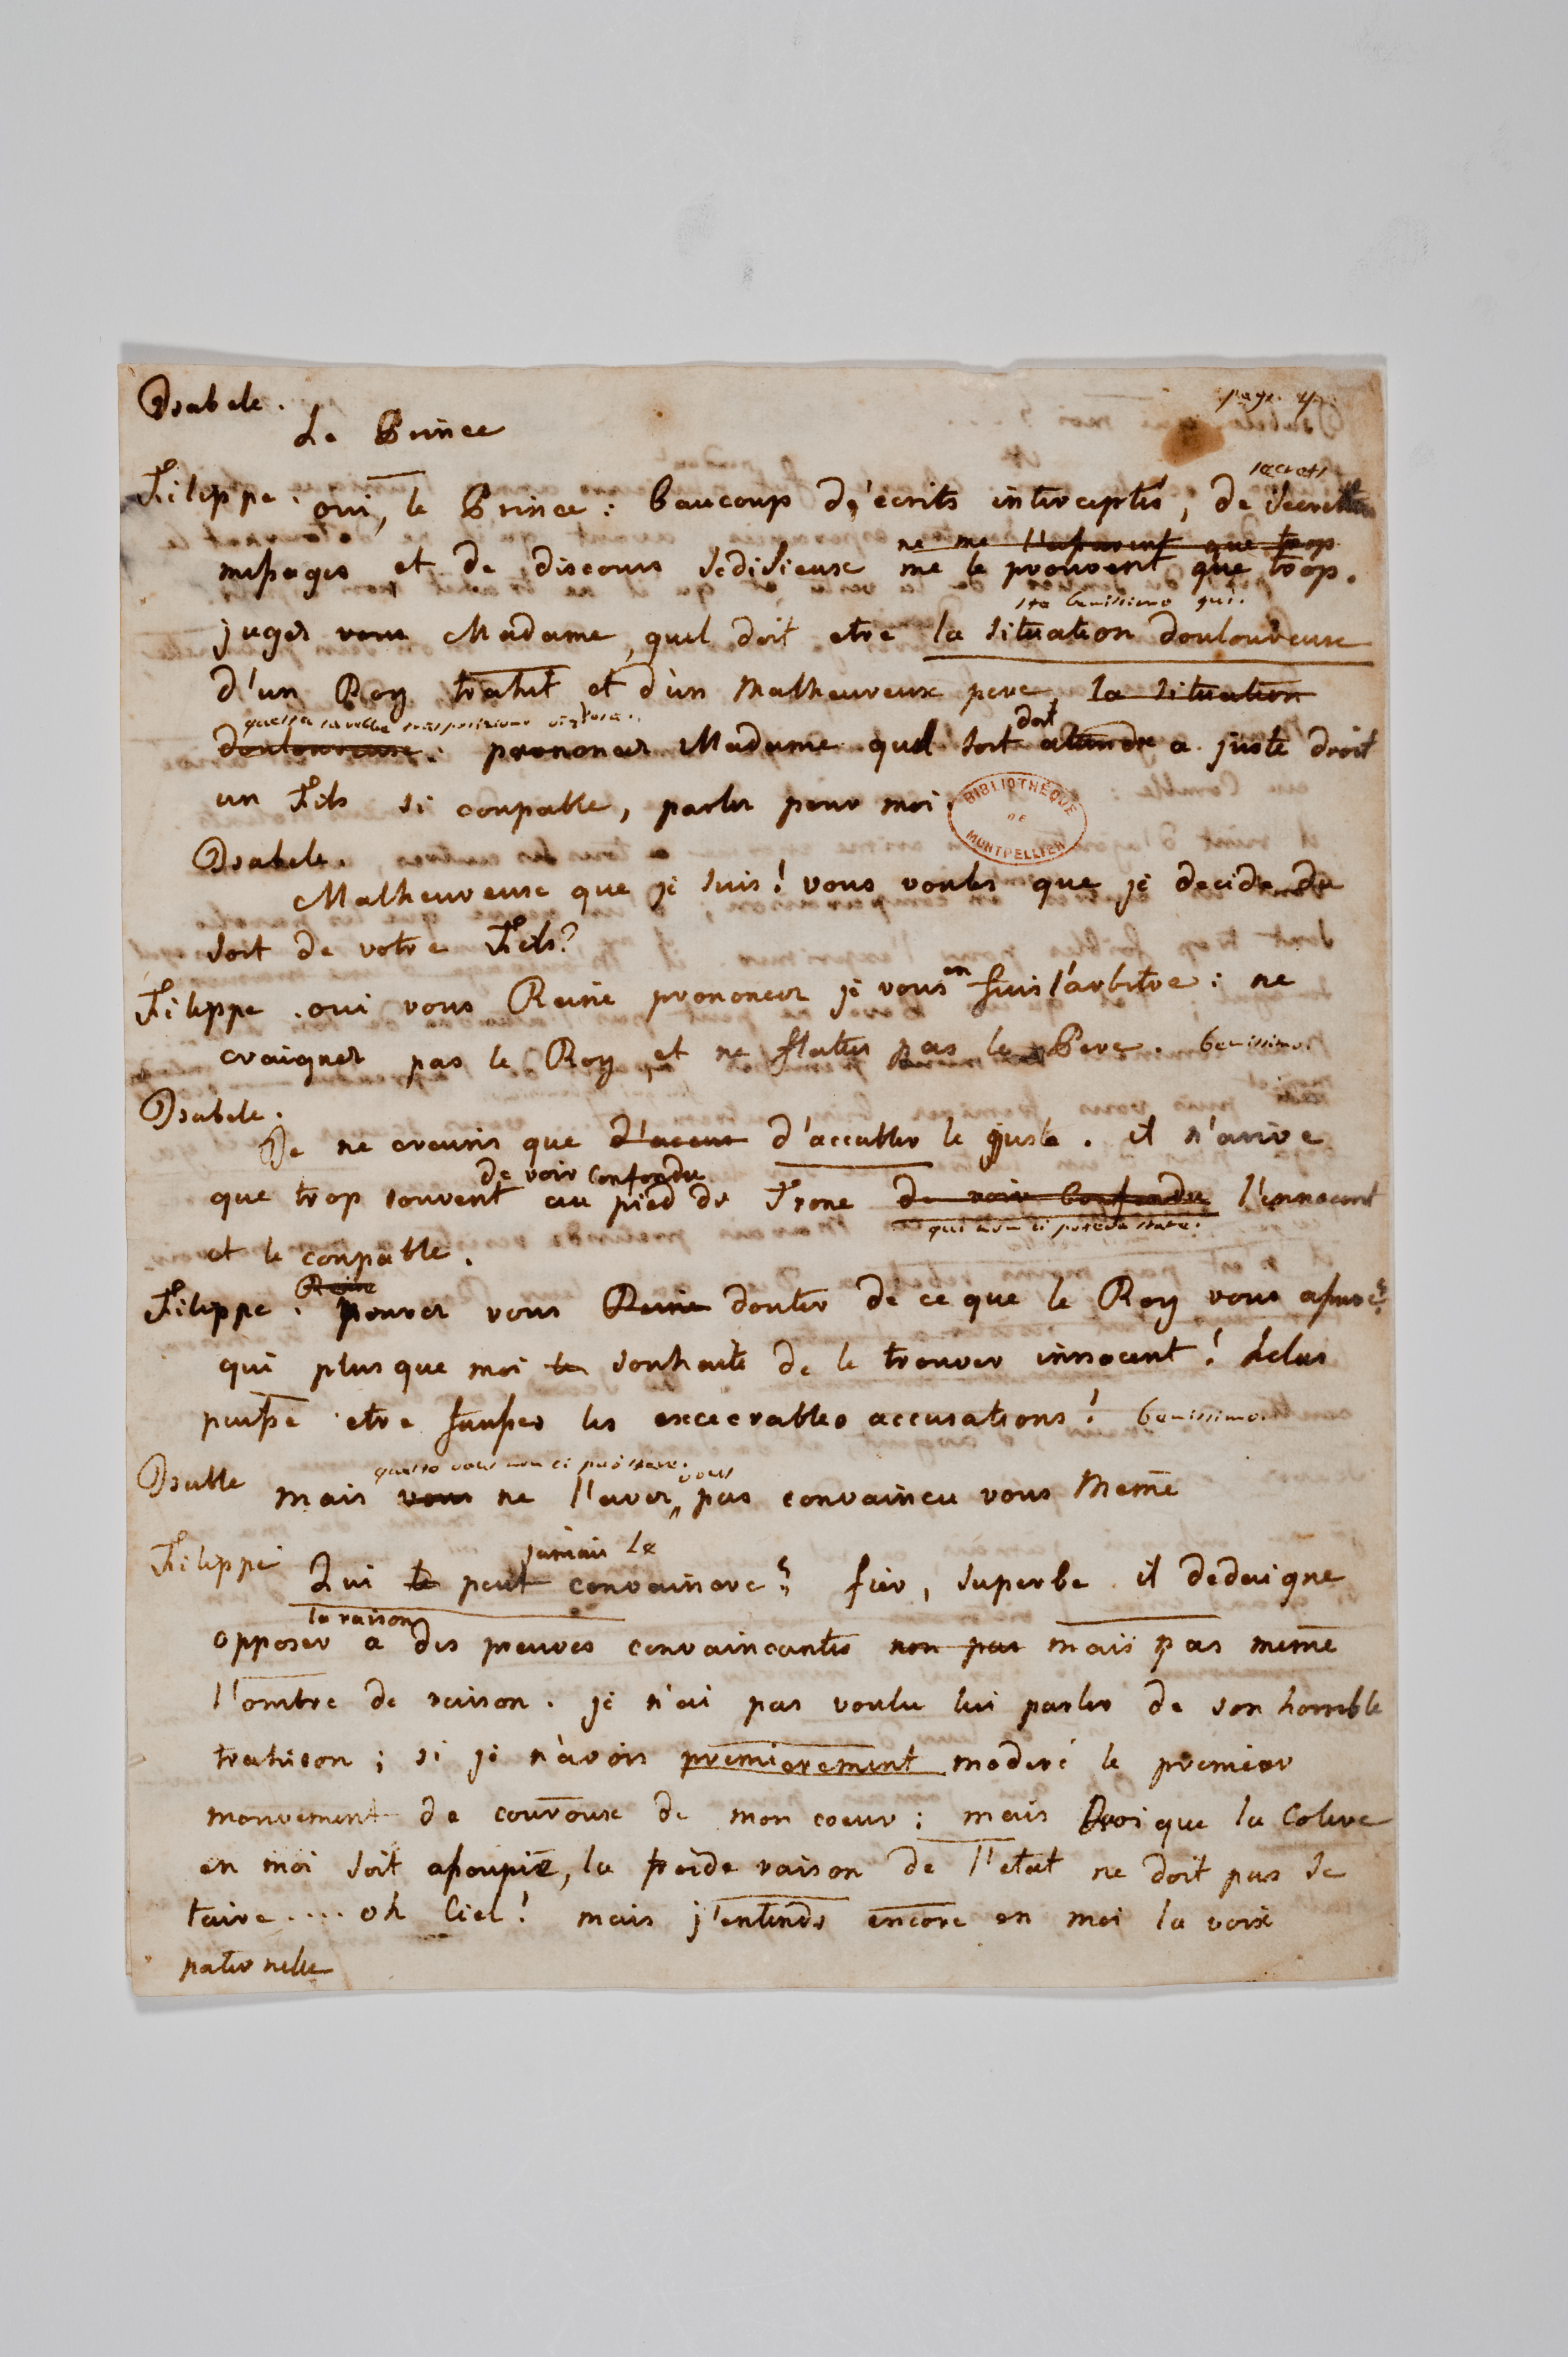 page. 4.
Isabele.
Le Prince
secrets
Filippe. oui, le Prince: baucoup d'écrits interceptés, de secrettes
ne me l'assurent que trop
messages et de discours sedisieux me le prouvent que trop.
sta benissimo qui.
juges vous Madame, quel doit etre la situation douloureuse
d'un Roy trahit et d'un malheureux pere, la situation
questa
doit
douloureuse. prononcez Madame quel sort attendre a juste droit
un Fils si coupable, parlez pour moi.
BIBLIOTHÈQUE DE MONTPELLIER
Isabele.
Malheureuse que je suis! vous voulez que je decide du
sort de votre Fils?
en
Filippe. oui vous Reine prononcez je vous fais l'arbitre: ne
craignez pas le Roy, et ne flatez pas le Pere. benissimo.
Isabele.
Je ne crains que d'accabler le juste. il n'arive
de voir confondu
que trop souvent au pied du Trone de voir confondu l'innocent
qui non ci poteva stare.
et le coupable.
Reine
Filippe. pouvez vous Reine douter de ce que le Roy vous assure?
qui plus que moi le souhaite de le trouver innocent! helas
pusse etre fausses les excecrables accusations! benissimo.
questo vous non ci può stare. vous
Isabelle mais vous ne l'avez pas convaincu vous meme
jamais le
Filippe Qui le peut convaincre? fier, superbe il dedaigne
la raison
opposer a des preuves convaincantes non pas mais pas meme
l'ombre de raison. je n'ai pas voulu lui parler de son horrible
trahison; si je n'avois premierement moderé le premier
mouvement de couroux de mon coeur: mais quoique la colere
en moi soit assoupie, la froide raison de l'etat ne doit pas se
taire.... oh Ciel! mais j'entends encore en moi la voix
paternelle